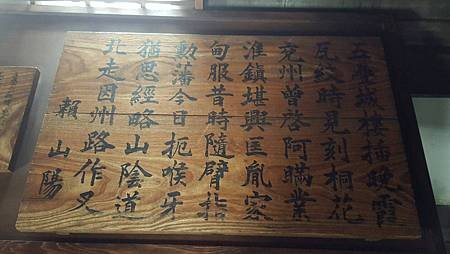 五疊城樓插晚霞
瓦紋時見刻桐花
兗州曾啓阿瞞業
淮鎮堪興匡胤家
甸服昔時隨臂指
勲藩今日扼喉牙
猶思經略山陰道
北走因州路作叉
賴山陽